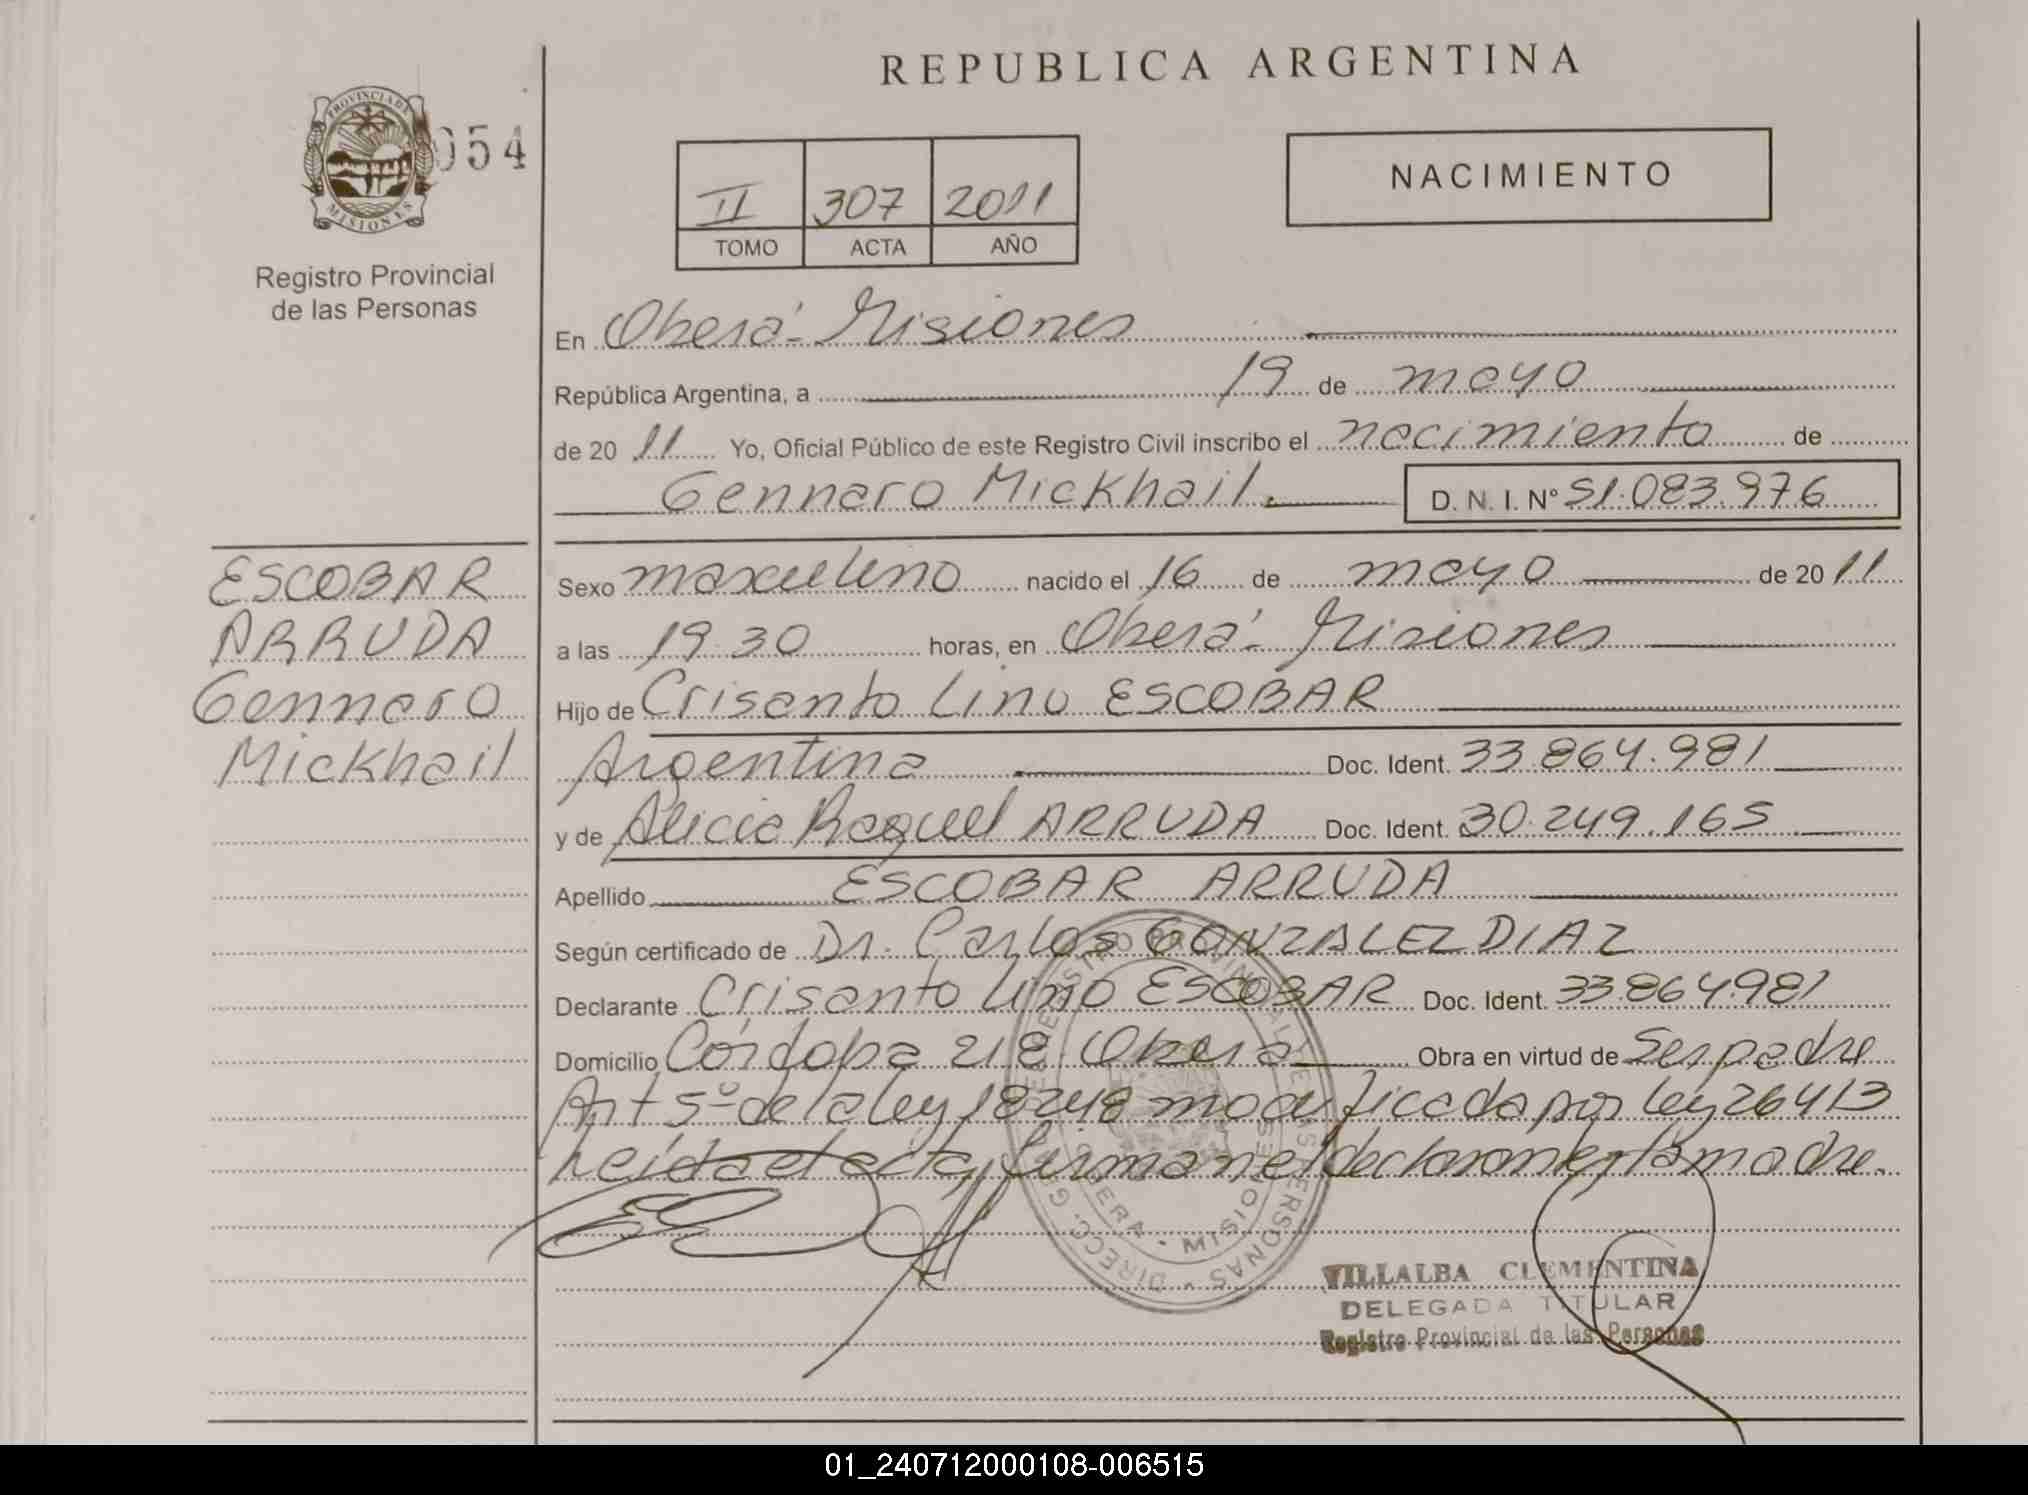 REPUBLICA ARGENTINA
PROVINCIA DE
MISIONES
054
Registro Provincial
de las Personas
II 307 2011
TOMO ACTA AÑO
NACIMIENTO
En Oberá - Misiones
República Argentina, a 19 de mayo
de 20 11 Yo, Oficial Público de este Registro Civil inscribo el nacimiento de
Gennaro Mickhail. D. N. I. Nº 51.083.976
ESCOBAR
ARRUDA
Gennaro
Mickhail
Sexo masculino nacido el 16 de mayo de 20 11
a las 19.30 horas, en Oberá - Misiones
Hijo de Crisanto Lino ESCOBAR
Argentina Doc. Ident. 33.864.981
y de Alicia Raquel ARRUDA Doc. Ident. 30.249.165
Apellido ESCOBAR ARRUDA
Según certificado de Dr. Carlos GONZALEZ DIAZ
Declarante Crisanto Lino ESCOBAR Doc. Ident. 33.864.981
Domicilio Córdoba 218 - Oberá Obra en virtud de Ser padre
Art 5º de la ley 18248 modificada por ley 26413
Leída el acta, firman el declarante y la madre.
VILLALBA CLEMENTINA
DELEGADA TITULAR
Registro Provincial de las Personas
01_240712000108-006515